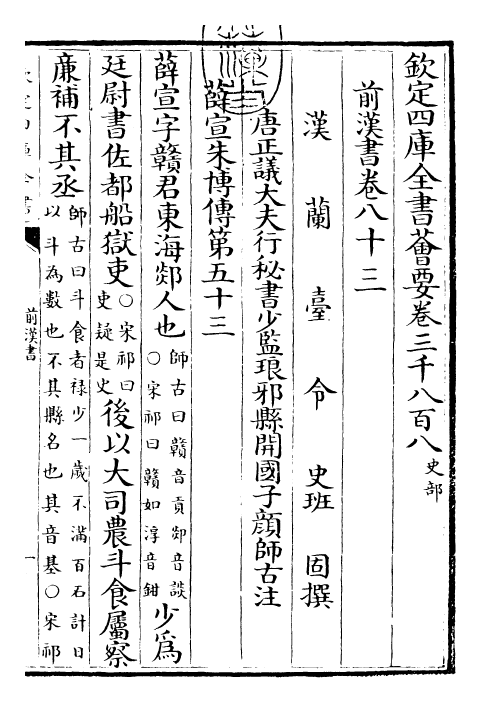 欽定四庫全書薈要卷三千八百八 史部
前漢書卷八十三
漢蘭臺令史班固撰
唐正議大夫行秘書少監琅邪縣開國子顔師古注
薛宣朱博傳第五十三
薛宣字贛君東海郯人也 師古曰贛音貢郯音談
○宋祁曰贛如淳音鉗 少為
廷尉書佐都船獄吏 ○宋祁曰
吏疑是史 後以大司農斗食屬察
廉補不其丞 師古曰斗食者禄少一歲不滿百石計日
以斗為數也不其縣名也其音基○宋祁
前漢書
一